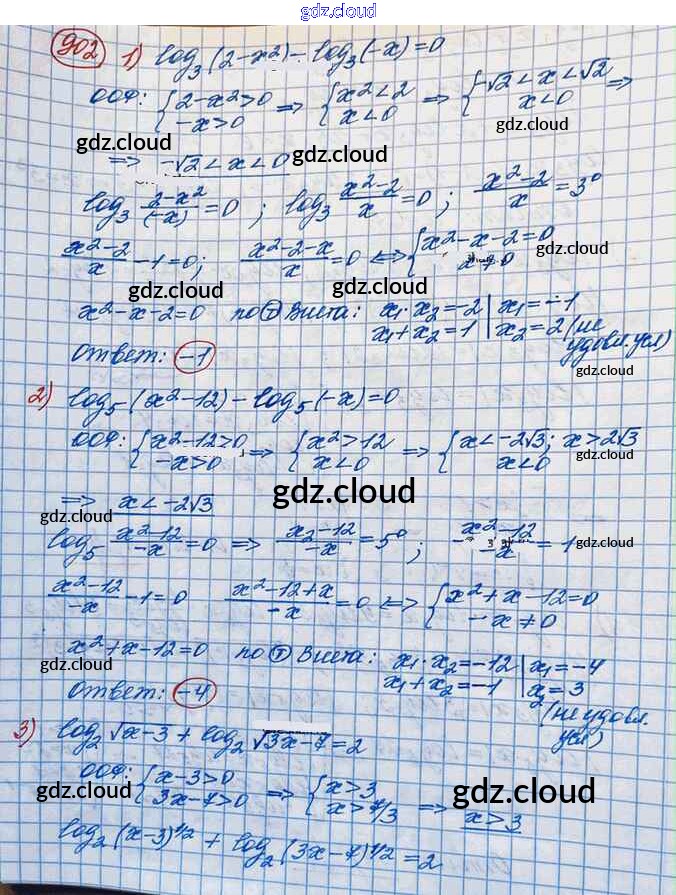 gdz.cloud
gdz.cloud
902 1) log₃(2-x²) - log₃(-x) = 0
ООФ: { 2-x²>0 ; -x>0 ⇒ { x²<2 ; x<0 ⇒ { -√2<x<√2 ; x<0 ⇒
gdz.cloud
gdz.cloud
⇒ -√2<x<0
gdz.cloud
gdz.cloud
log₃ (2-x²)/(-x) = 0 ; log₃ (x²-2)/x = 0 ; (x²-2)/x = 3⁰
gdz.cloud
(x²-2)/x - 1 = 0; (x²-2-x)/x = 0 ⇔ { x²-x-2=0 ; x≠0
gdz.cloud
gdz.cloud
gdz.cloud
x²-x-2=0 по Т Виета: x₁·x₂=-2 ; x₁+x₂=1 | x₁=-1 ; x₂=2 (не удовл. усл)
gdz.cloud
Ответ: -1
gdz.cloud
2) log₅(x²-12) - log₅(-x) = 0
ООФ: { x²-12>0 ; -x>0 ⇒ { x²>12 ; x<0 ⇒ { x<-2√3; x>2√3 ; x<0
gdz.cloud
gdz.cloud
⇒ x<-2√3
gdz.cloud
gdz.cloud
log₅ (x²-12)/-x = 0 ⇒ (x₂-12)/-x = 5⁰ ; (x²-12)/-x = 1
gdz.cloud
(x²-12)/-x - 1 = 0 (x²-12+x)/-x = 0 ⇔ { x²+x-12=0 ; -x≠0
x²+x-12=0 по Т Виета: x₁·x₂=-12 ; x₁+x₂=-1 | x₁=-4 ; x₂=3 (не удовл. усл)
gdz.cloud
Ответ: -4
gdz.cloud
3) log₂√x-3 + log₂√3x-7 = 2
ООФ: { x-3>0 ; 3x-7>0 ⇒ { x>3 ; x>7/3 ⇒ x>3
gdz.cloud
gdz.cloud
log₂(x-3)^1/2 + log₂(3x-7)^1/2 = 2